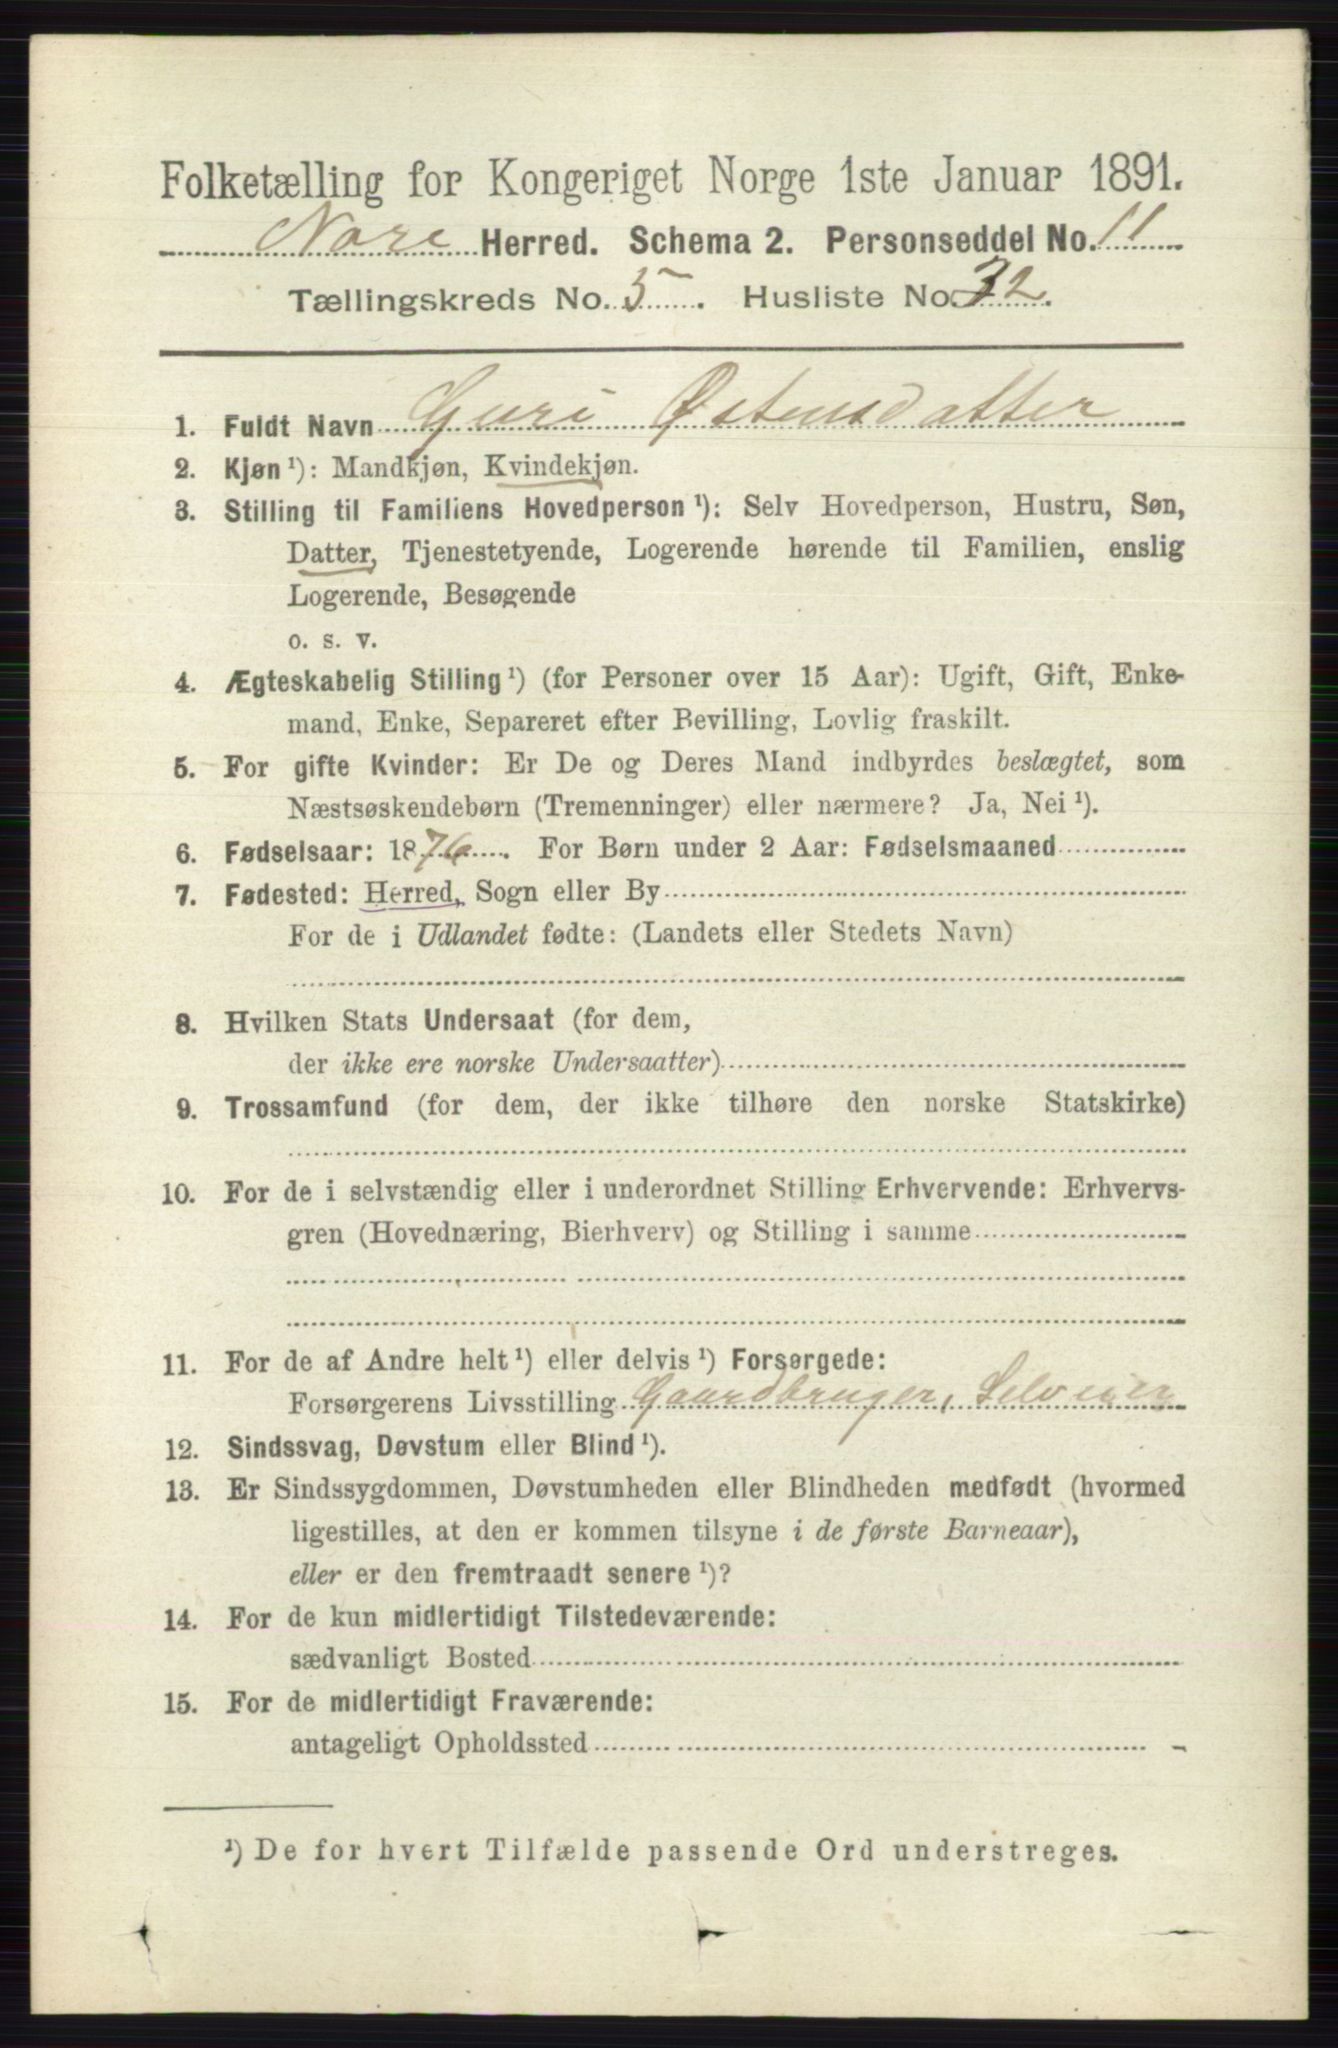 Folketælling for Kongeriget Norge 1ste Januar 1891.
Nore Herred. Schema 2. Personseddel No. 11
Tællingskreds No. 5. Husliste No. 32.
1. Fuldt Navn Guri Østensdatter
2. Kjøn ¹): Mandkjøn, Kvindekjøn.
3. Stilling til Familiens Hovedperson ¹): Selv Hovedperson, Hustru, Søn,
Datter, Tjenestetyende, Logerende hørende til Familien, enslig
Logerende, Besøgende
o. s. v.
4. Ægteskabelig Stilling ¹) (for Personer over 15 Aar): Ugift, Gift, Enke-
mand, Enke, Separeret efter Bevilling, Lovlig fraskilt.
5. For gifte Kvinder: Er De og Deres Mand indbyrdes beslægtet, som
Næstsøskendebørn (Tremenninger) eller nærmere? Ja, Nei ¹).
6. Fødselsaar: 1876. For Børn under 2 Aar: Fødselsmaaned
7. Fødested: Herred, Sogn eller By
For de i Udlandet fødte: (Landets eller Stedets Navn)
8. Hvilken Stats Undersaat (for dem,
der ikke ere norske Undersaatter)
9. Trossamfund (for dem, der ikke tilhøre den norske Statskirke)
10. For de i selvstændig eller i underordnet Stilling Erhvervende: Erhvervs-
gren (Hovednæring, Bierhverv) og Stilling i samme
11. For de af Andre helt ¹) eller delvis ¹) Forsørgede:
Forsørgerens Livsstilling Gaardbruger, Selveier
12. Sindssvag, Døvstum eller Blind ¹).
13. Er Sindssygdommen, Døvstumheden eller Blindheden medfødt (hvormed
ligestilles, at den er kommen tilsyne i de første Barneaar),
eller er den fremtraadt senere ¹)?
14. For de kun midlertidigt Tilstedeværende:
sædvanligt Bosted
15. For de midlertidigt Fraværende:
antageligt Opholdssted
¹) De for hvert Tilfælde passende Ord understreges.